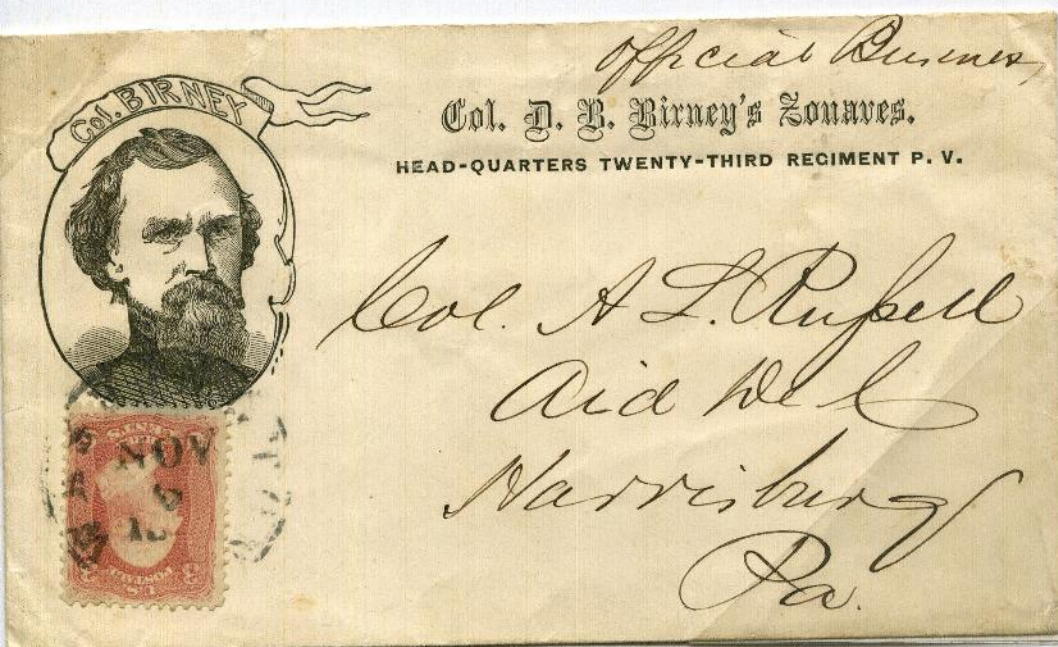 Official Business
Col. BIRNEY
Col. D. B. Birney's Zouaves.
HEAD-QUARTERS TWENTY-THIRD REGIMENT P. V.
Col. A L. Russell
Aid De C
Harrisburg
Pa.
NOV
6
U.S.
POSTAGE
3
3